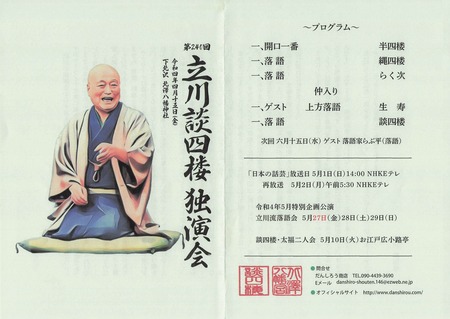 第241回
立川談四楼 独演会
令和四年四月十五日(金)
下北沢 北澤八幡神社
～プログラム～
一、開口一番 半四楼
一、落語 縄四楼
一、落語 らく次
仲入り
一、ゲスト 上方落語 生寿
一、落語 談四楼
次回 六月十五日(水) ゲスト 落語家らぶ平(落語)
「日本の話芸」放送日 5月1日(日)14:00 NHKEテレ
再放送 5月2日(月)午前5:30 NHKEテレ
令和4年5月特別企画公演
立川流落語会 5月27日(金)28(土)29(日)
談四楼・太福二人会 5月10日(火)お江戸広小路亭
●問合せ
だんしろう商店 TEL,090-4439-3690
Eメール danshiro-shouten.146@ezweb.ne.jp
●オフィシャルサイト http://www.danshirou.com/